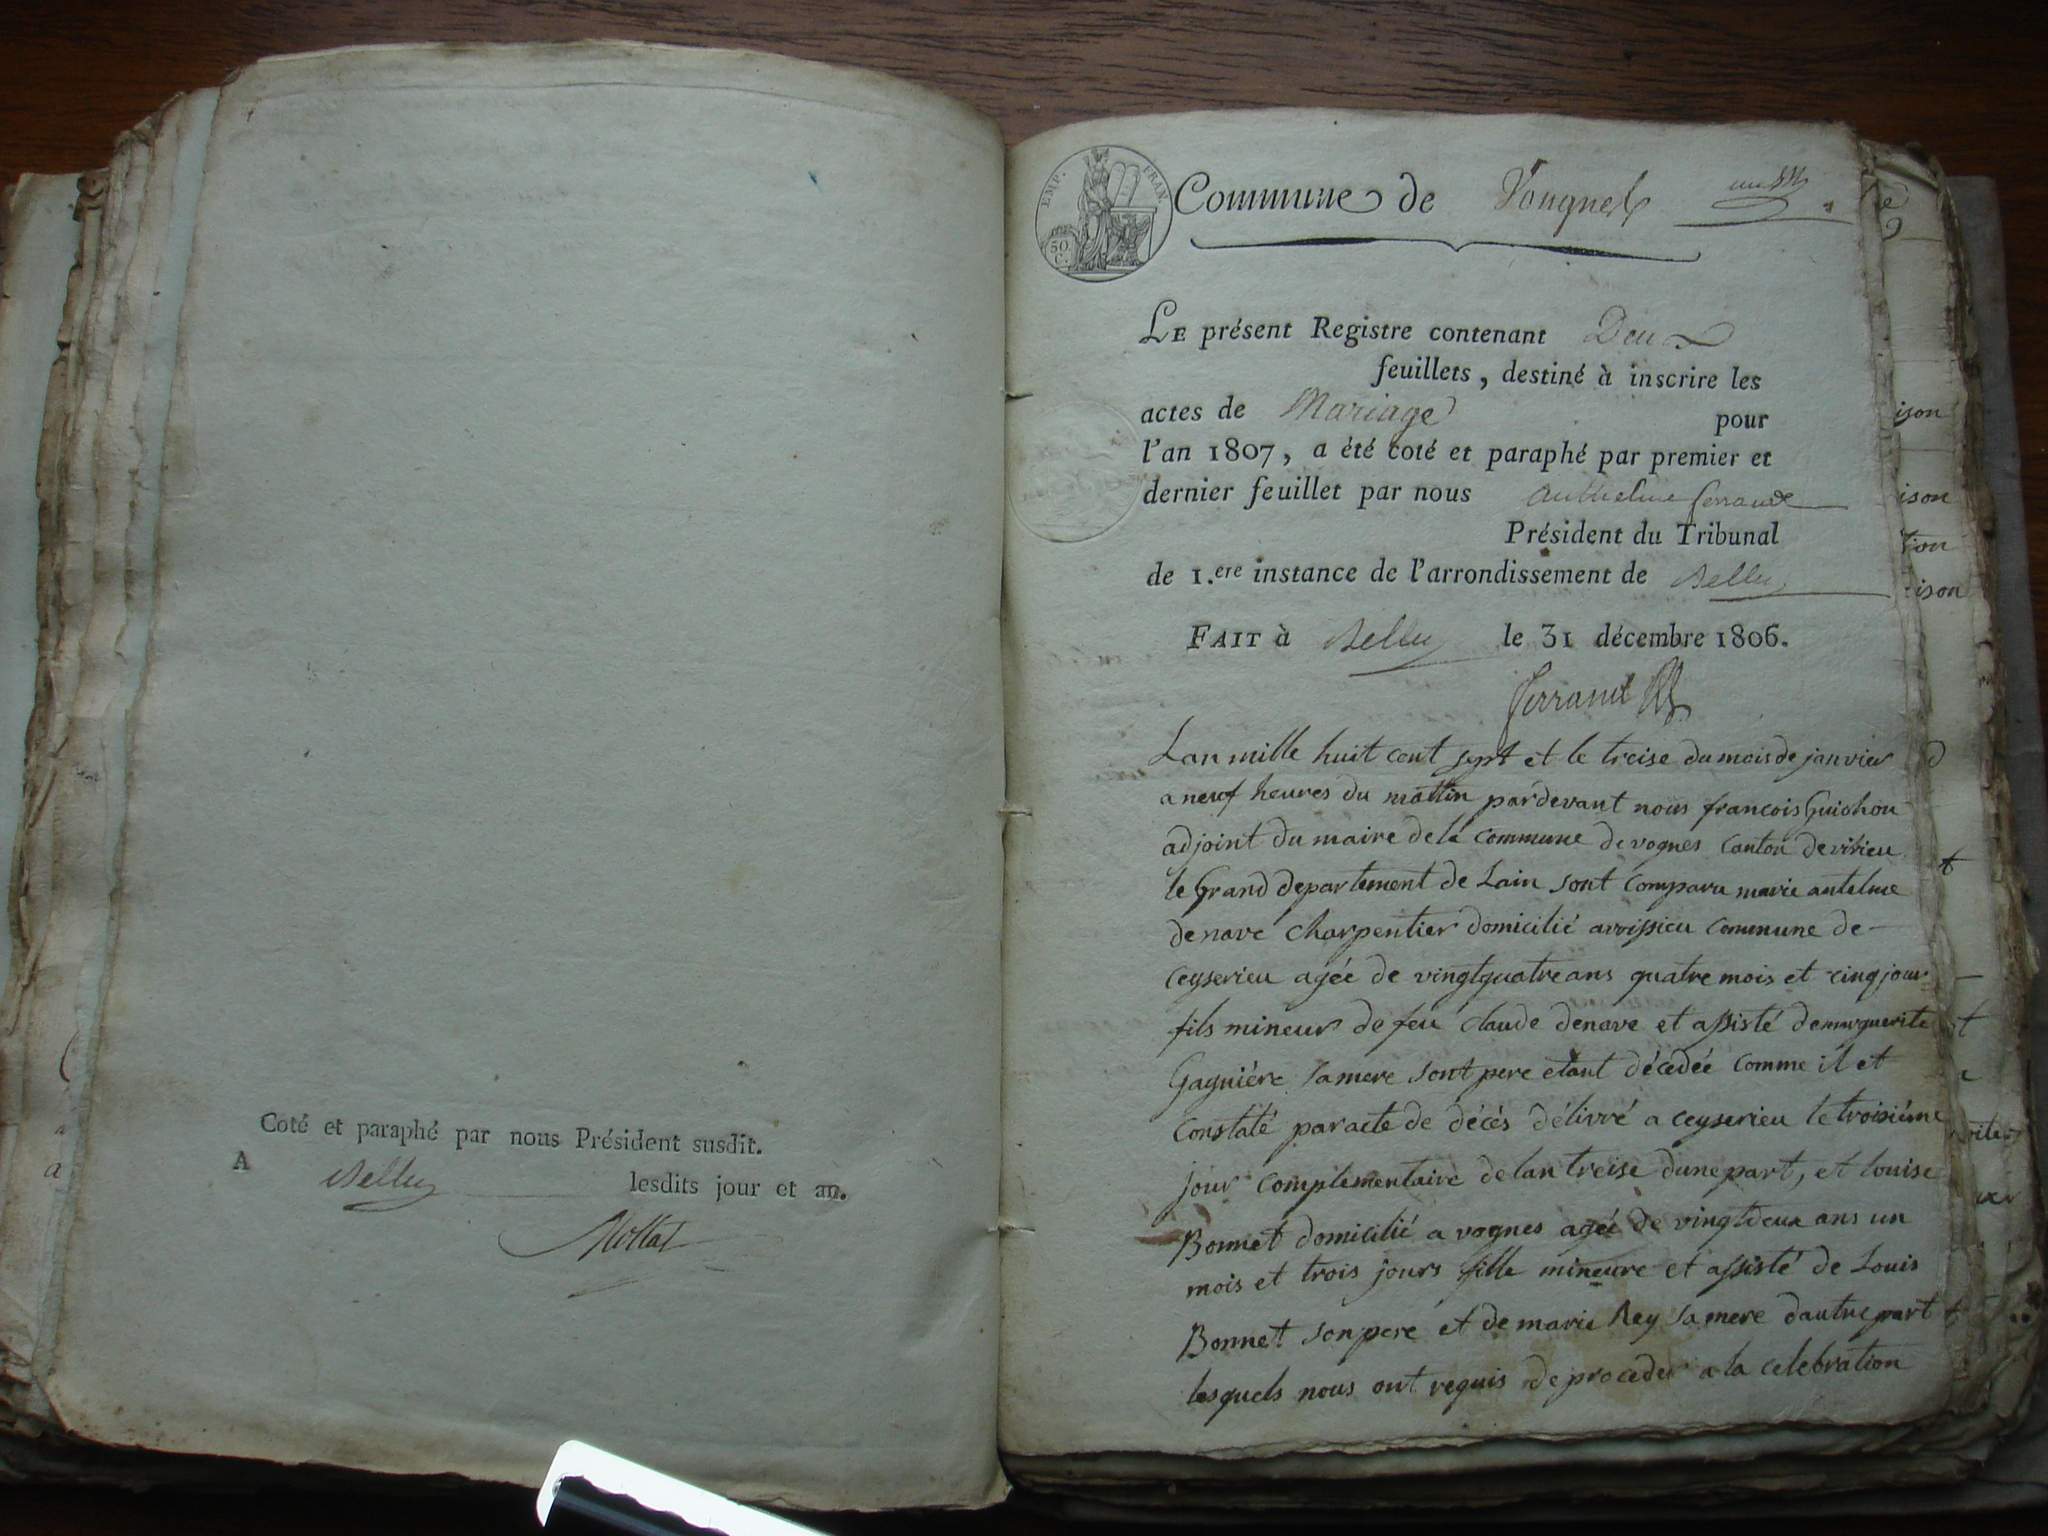 Coté et paraphé par nous Président susdit.
A Belley lesdits jour et an.
Mottat
EMP. FRAN.
50 C.
Commune de Vougnes
LE présent Registre contenant Deux
feuillets, destiné à inscrire les
actes de Mariage pour
l'an 1807, a été coté et paraphé par premier et
dernier feuillet par nous Anthelme ferrand
Président du Tribunal
de 1.ere instance de l'arrondissement de Belley
FAIT à Belley le 31 décembre 1806.
ferrand
Lan mille huit cent sept et le treise du mois de janvier
a neuf heures du mattin pardevant nous francois Guichon
adjoint du maire de la commune de vognes canton de virieu
le Grand departement de Lain sont comparu marie antelme
denave charpentier domicilié avoissieu commune de
ceyserieu agée de vingtquatre ans quatre mois et cinq jour
fils mineur de feu claude denave et assisté de marguerite
Gagnière sa mere sont pere etant décedée comme il et
constaté par acte de décès délivré a ceyserieu le troisiéme
jour complementaire de lan treise dune part, et louise
Bonnet domicilié a vognes agée de vingt deux ans un
mois et trois jours fille mineure et assisté de Louis
Bonnet son pere et de marie Rey sa mere dautre part
lesquels nous ont requis de proceder a la celebration
ison
ison
tion
ison